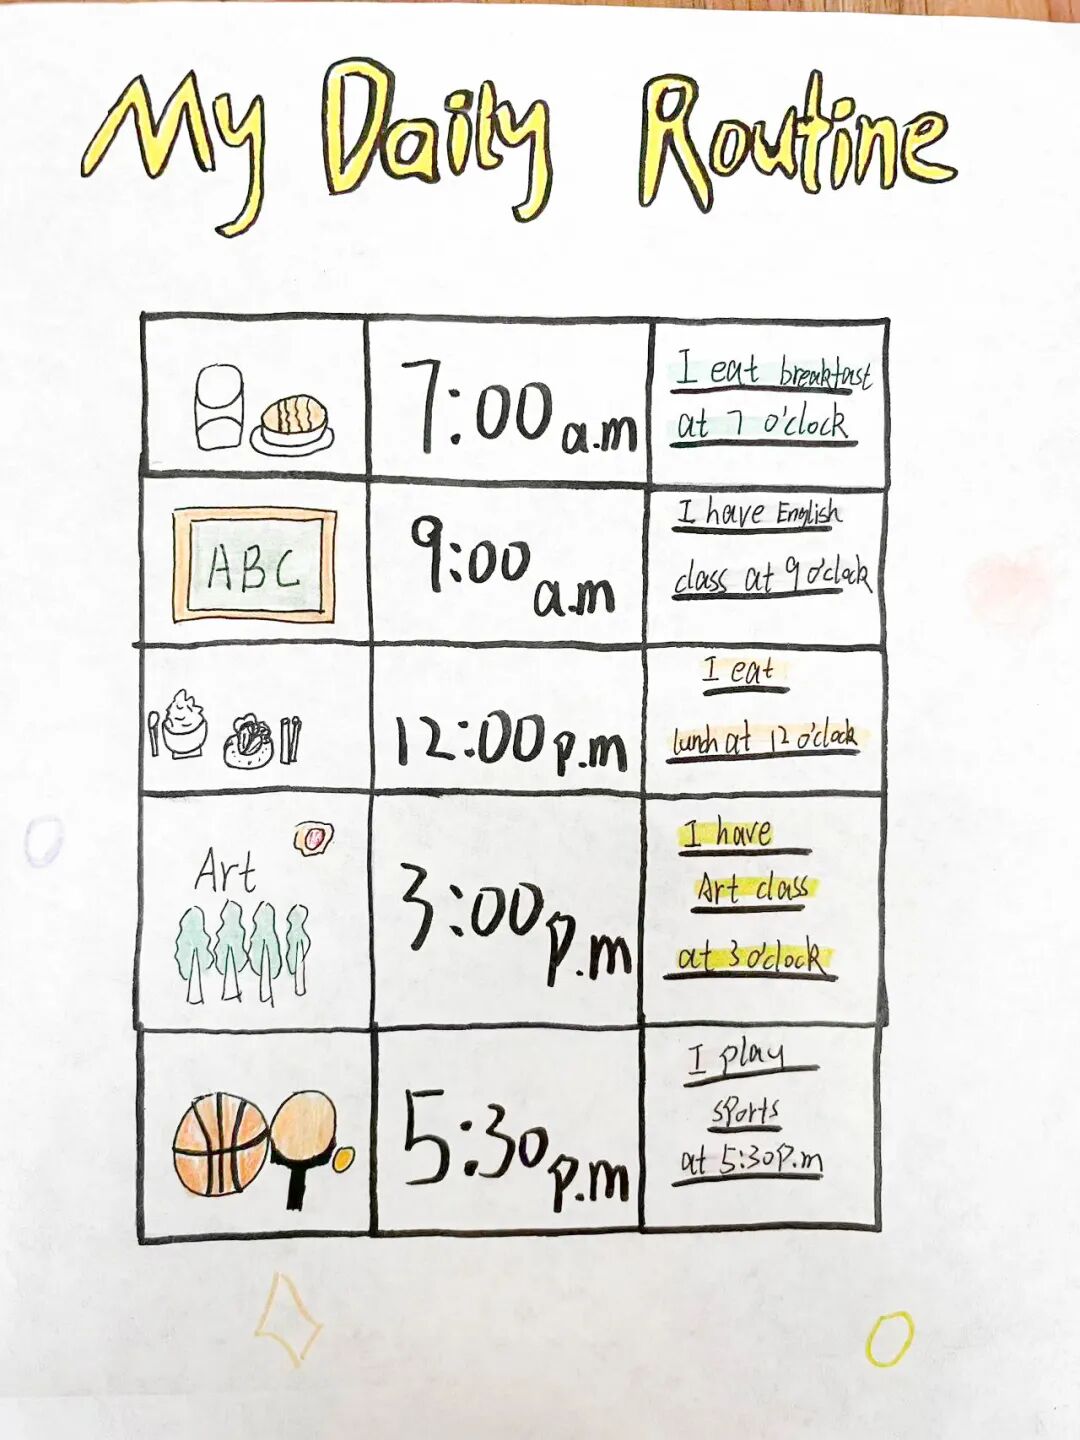 My Daily Routine
7:00 a.m
I eat breakfast
at 7 o'clock
ABC
9:00 a.m
I have English
class at 9 o'clock
12:00 p.m
I eat
lunch at 12 o'clock
Art
3:00 p.m
I have
Art class
at 3 o'clock
5:30 p.m
I play
sports
at 5:30 p.m